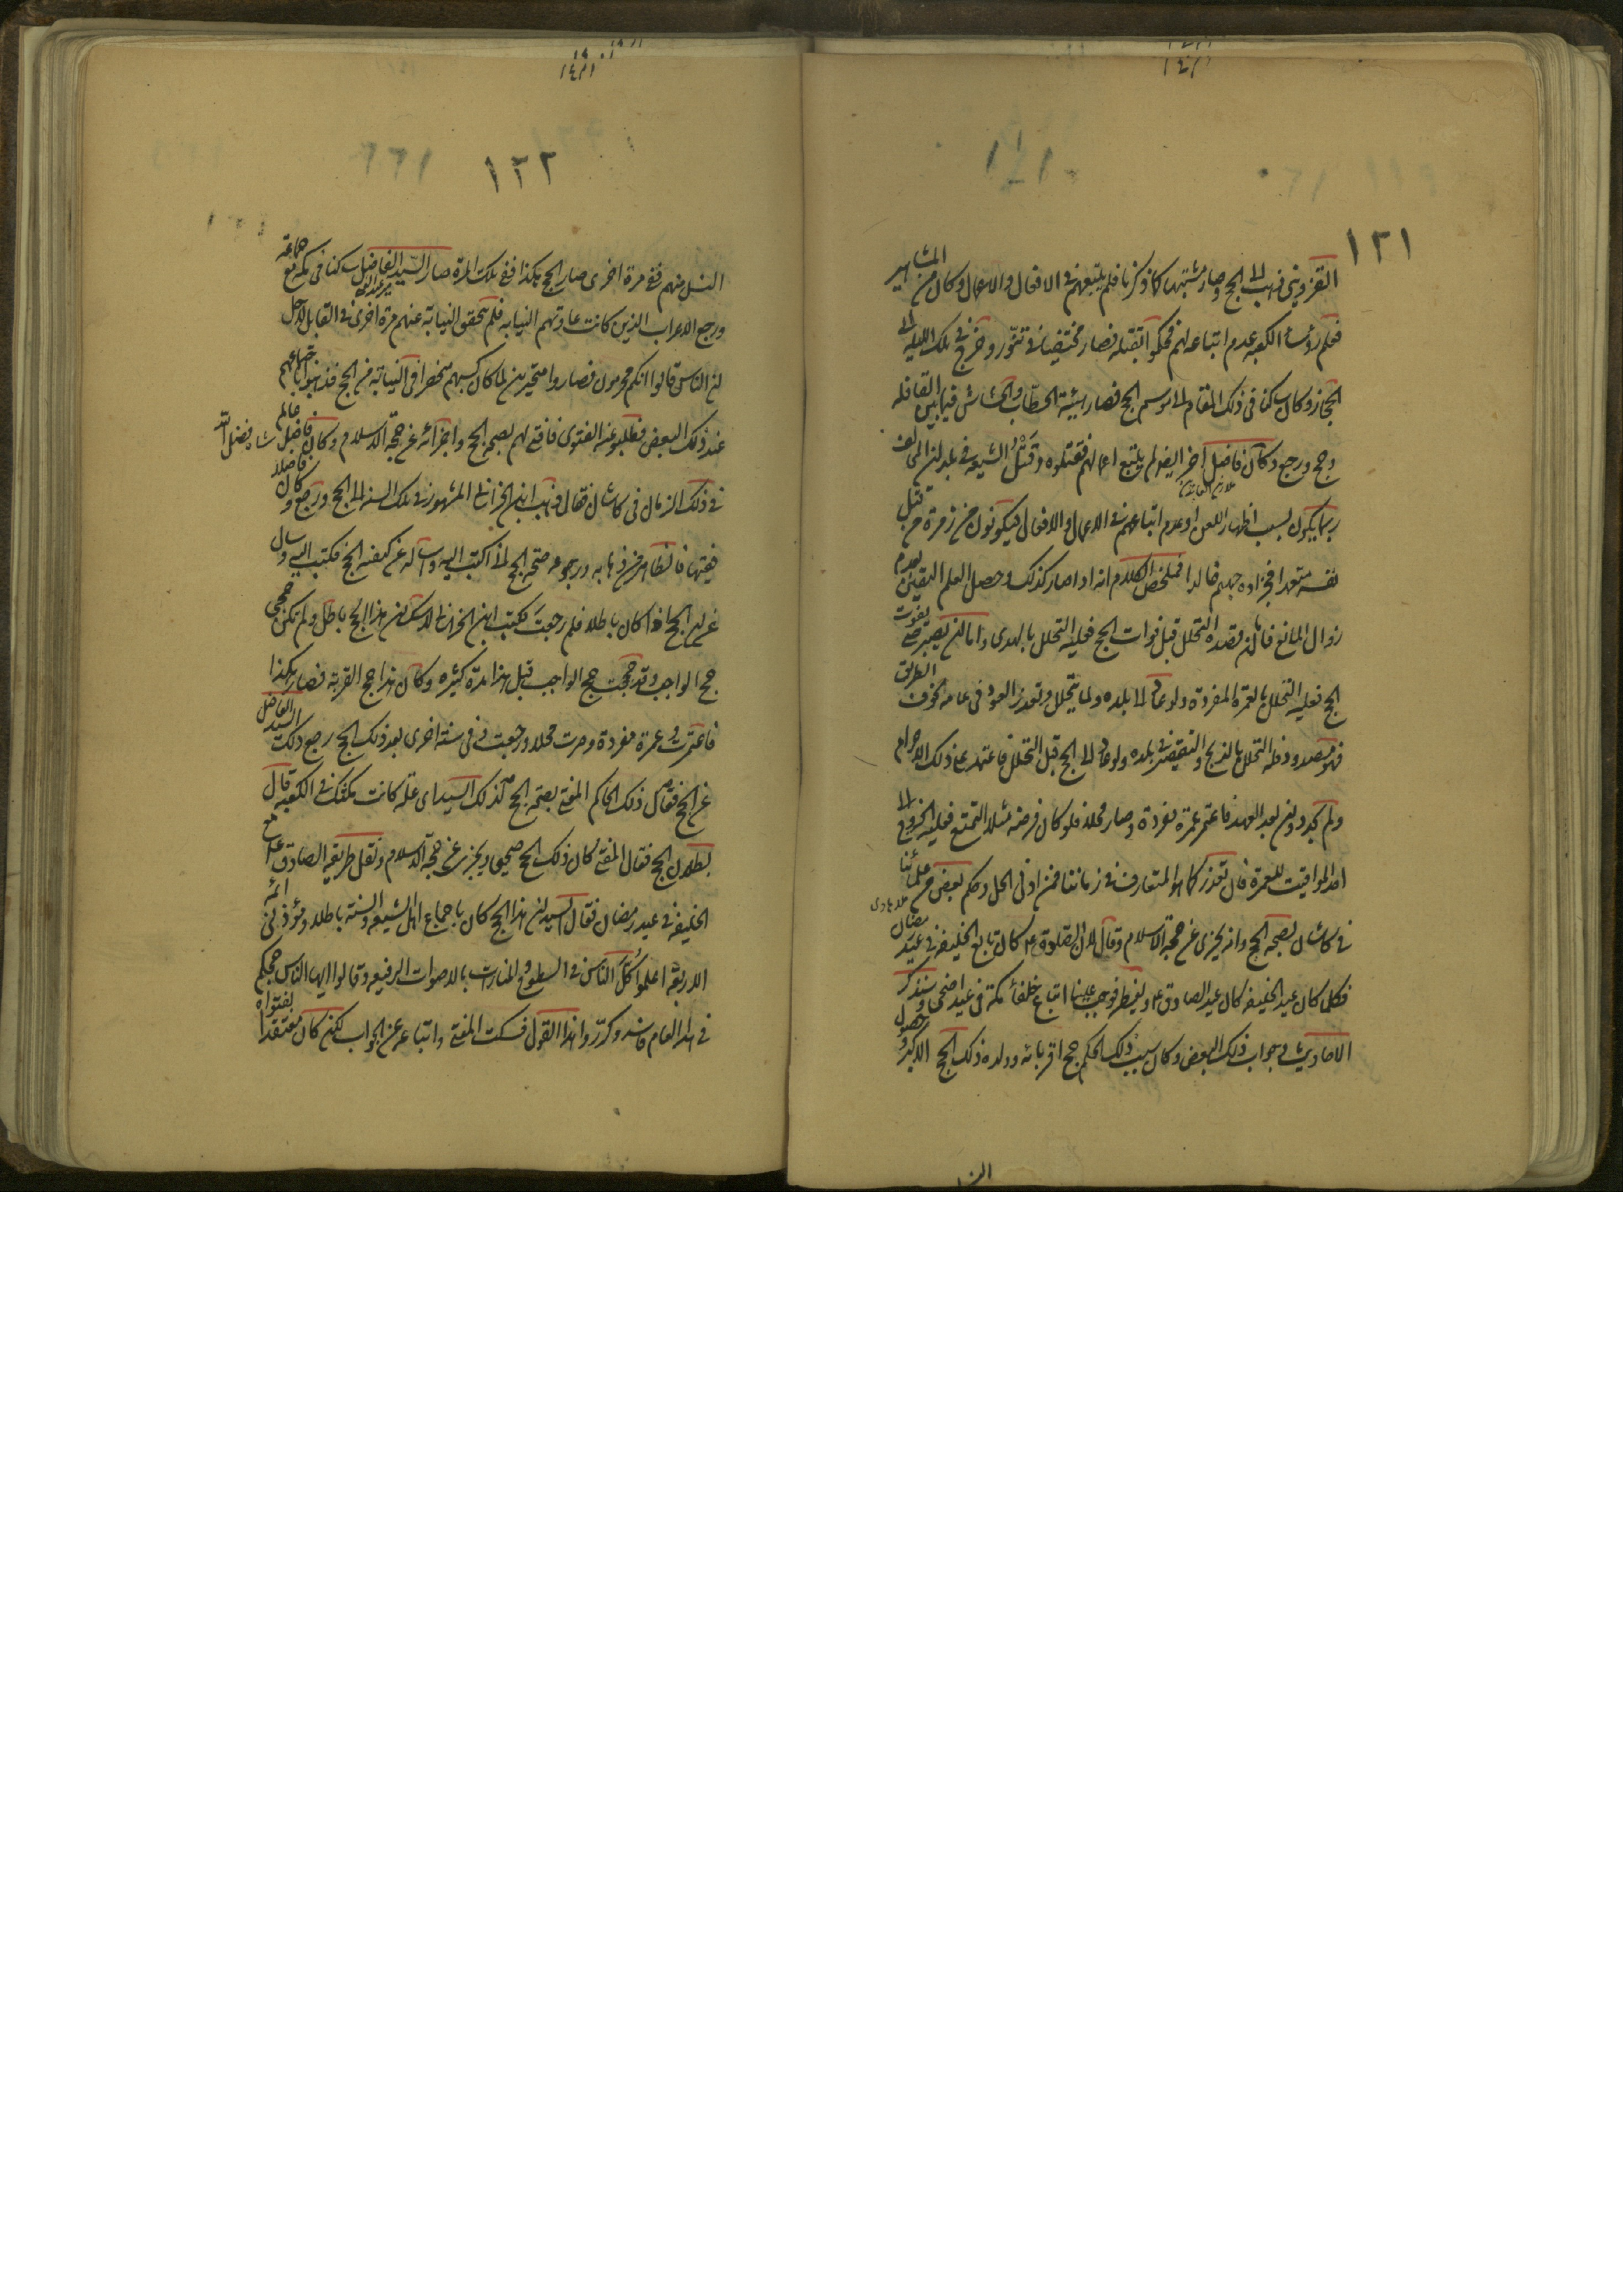 ١٢١
القزوینی فذهب الی الحج وصار مشتبها کما ذکرنا فلم یتبعهم فی الافعال والاعمال وکان من المشاهیر
فعلم رؤساء الکعبه عدم اتباعه لهم فحکموا بقتله فصار مختفیا فی تنّور وخرج فی تلک اللیله الی
الحجاز وکان ساکنا فی ذلک المقام الی موسم الحج فصار بهیئة الحطّاب والحشاش فیما بین القافله
وحج ورجع وکان فاضل آخر ایضا لم یتبع اعمالهم فقتلوه وقتل الشیعه فی بلد المخالف
ربما یکون بسبب اظهار اللعن او عدم اتباعهم فی الاعمال والافعال فیکونون من زمرة من قتل
نفسه متعمدا فجزاؤه جهنم خالدا فملخص الکلام انه اذا صار کذلک وحصل العلم الیقین بعدم
زوال المانع فان قصده التحلل قبل فوات الحج فعلیه التحلل بالهدی واما ان یصبر حتی یفوت
الحج فعلیه التحلل بالعمرة المفردة ولو عاد الی بلده ولما یتحلل وتعذر العود فی عامه لخوف الطریق
فهو مصدود فله التحلل بالذبح والتقصیر فی بلده ولو عاد الی الحج قبل التحلل فاعتمد علی ذلک الاحرام
ولم یجدد وان بعد العهد فاعتمر عمرة مفردة وصار محلا فلو کان فرضه مثلا التمتع فعلیه الخروج الی
احد المواقیت للعمرة فان تعذر کما هو المتعارف فی زماننا فمن ادنی الحل وحکم بعض من علمائنا
فی کاشان بصحة الحج وانه یجزی عن حجة الاسلام وقال لان الصادق ع کان تابع الخلیفه فی عید رمضان
فکلما کان عید الخلیفه کان عید الصادق ع ویفطر فوجب علینا اتباع خلفاء مکة فی عید اضحی وسنذکر
الاحادیث وجواب ذلک البعض وکان سبب ذلک الحکم حج اقربائه وولده ذلک الحج الاکبر وحصول
١٢٢
النسل منهم ففی مرة اخری صار الحج هکذا ففی تلک المرة صار السید الفاضل ساکنا فی مکه مع جماعة
ورجع الاعراب الذین کانت عادتهم النیابه فلم یتحقق النیابة عنهم مرة اخری فی القابل لاجل
ان الناس قالوا انکم محرمون فصاروا متحیرین لما کان کسبهم منحصرا فی النیابة من الحج فذهبوا باجماعهم
عند ذلک البعض فطلبوا عنه الفتوی فافتی لهم بصحة الحج واجزائه عن حجة الاسلام وکان فاضل عالم
فی ذلک الزمان فی کاشان فقال ذهب ابن الخزانه المشهور فی تلک السنه الی الحج ورجع وکان فاضلا
فقیها فالظاهر من ذهابه ورجوعه صحة الحج لذا اکتب الیه واساله عن کیفیة الحج فکتب الیه وسال
عن ان الحج اذا کان باطلا فلم رجعت فکتب ابن الخزانه لا شک ان هذا الحج باطل ولم تکن حجی
حج الواجب وقد حججت حج الواجب قبل هذا بمدة کثیره وکان هذا حج القربة فصار هکذا
فاعتمرت عمرة مفردة وصرت محلا ورجعت وفی سنة اخری بعد ذلک الحج رجع ذلک السید الفاضل
عن الحج فقال ذلک الحاکم المفتی بصحة الحج لذلک السید ای علة کانت مکثک فی الکعبه قال
بطلان الحج فقال المفتی کان ذلک الحج صحیح ویجزی عن حجة الاسلام ونقل طریقه الصادق ع مع
الخلیفه فی عید رمضان فقال السید ان هذا الحج کان باجماع اهل الشیعه والسنة باطلا ومؤذنی ائمة
الاربعة اعلموا کل الناس فی السطوح والمنارات بالاصوات الرفیعه وقالوا ایها الناس حجکم
فی هذا العام فاسد وکرروا هذا القول فسکت المفتی واتباعه عن الجواب لکن کان معتقدا بفتواه